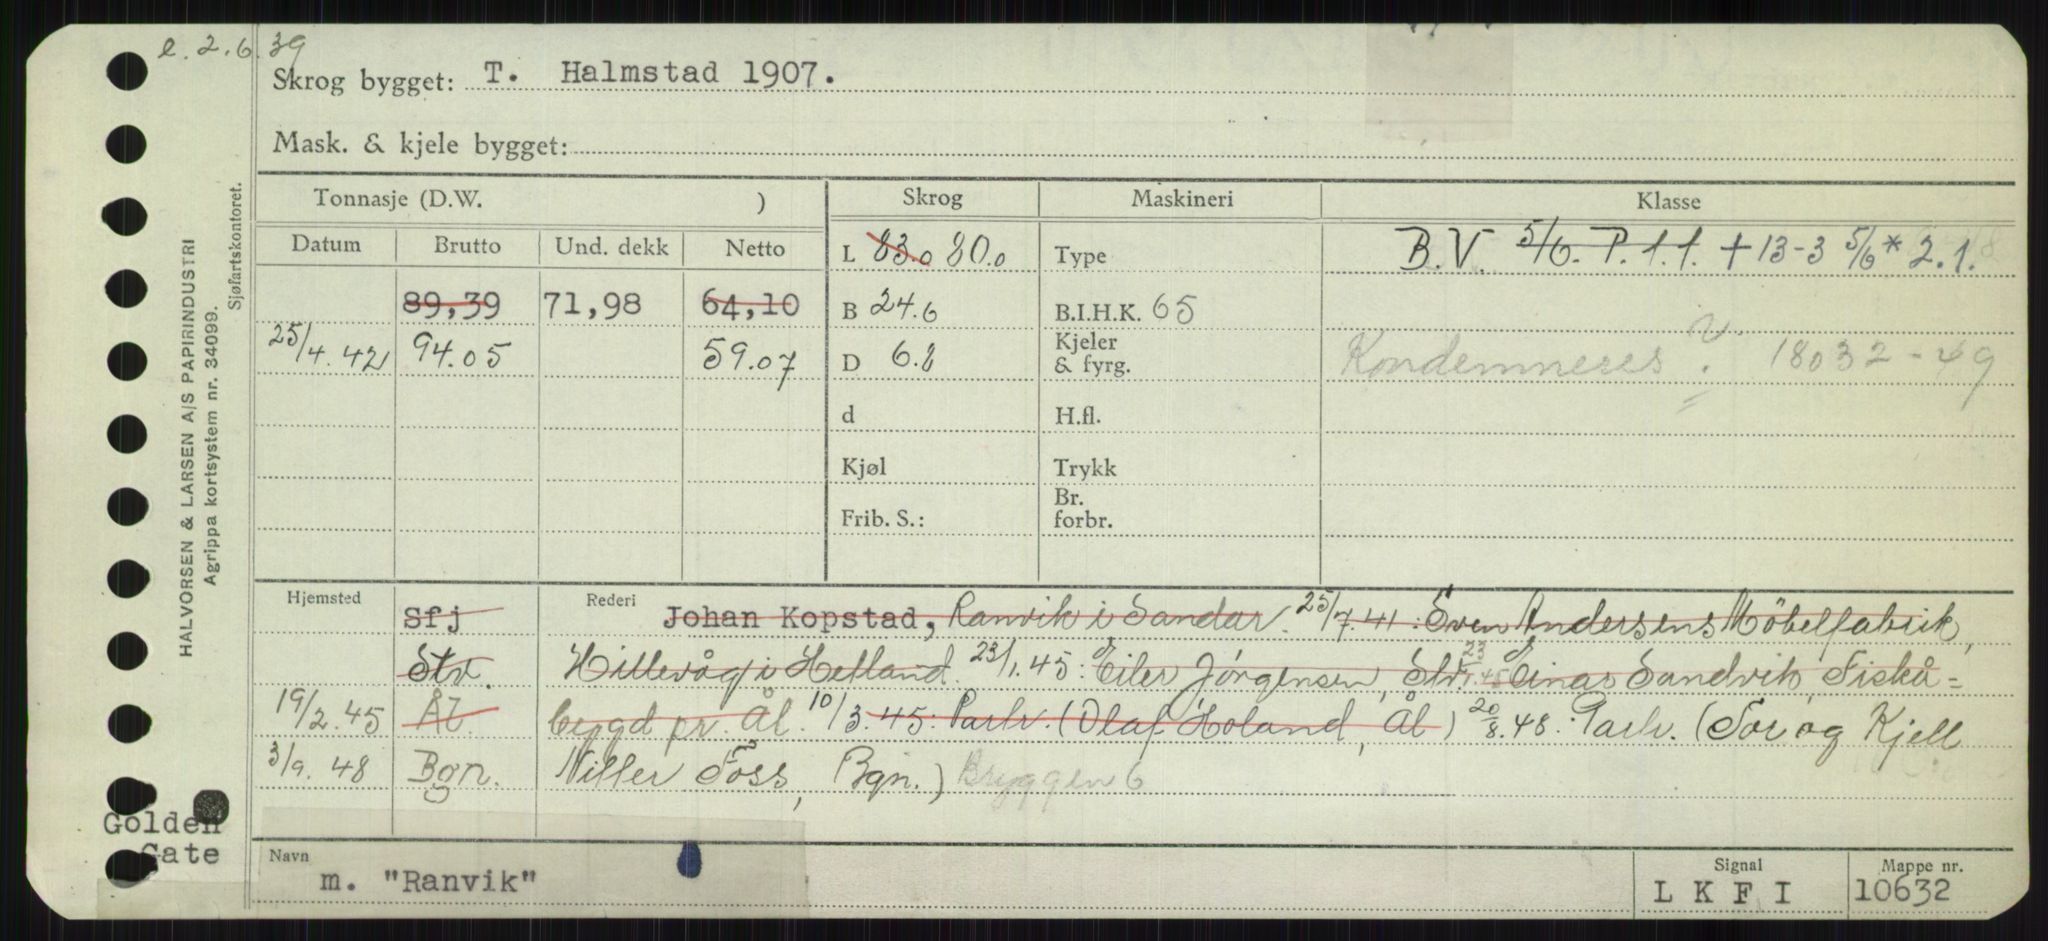 e. 2.6.39
Skrog bygget: T. Halmstad 1907.
Mask. & kjele bygget:
HALVORSEN & LARSEN A/S PAPIRINDUSTRI
Agrippa kortsystem nr. 34099.
Sjøfartskontoret.
Tonnasje (D.W. ) Skrog Maskineri Klasse
Datum Brutto Und. dekk Netto L 83.0 80.0 Type B.V. 5/6. P. 1.1. + 13-3 5/6* 2.1.
89,39 71,98 64,10 B 24.6 B.I.H.K. 65
25/4.42 94.05 59.07 D 6.8 Kjeler & fyrg. Kondemneres v. 18032-49
d H.fl.
Kjøl Trykk
Frib. S.: Br. forbr.
Hjemsted Sfj Rederi Johan Kopstad, Ranvik i Sandar. 25/7.41: Sven Andersens Möbelfabrik,
Stv. Hillevåg i Hetland. 23/1.45: Eiler Jørgensen, Stv. Einar Sandvik, Fiskå=
19/2.45 Ål. bygd pr. Ål. 10/3.45: Partr. (Olaf Holand, Ål) 20/8.48: Partr. (Tor og Kjell
3/9.48 Bgn. Niller Foss, Bgn.) Bryggen 6
Golden
Gate
Navn m. "Ranvik" Signal LKFI Mappe nr. 10632